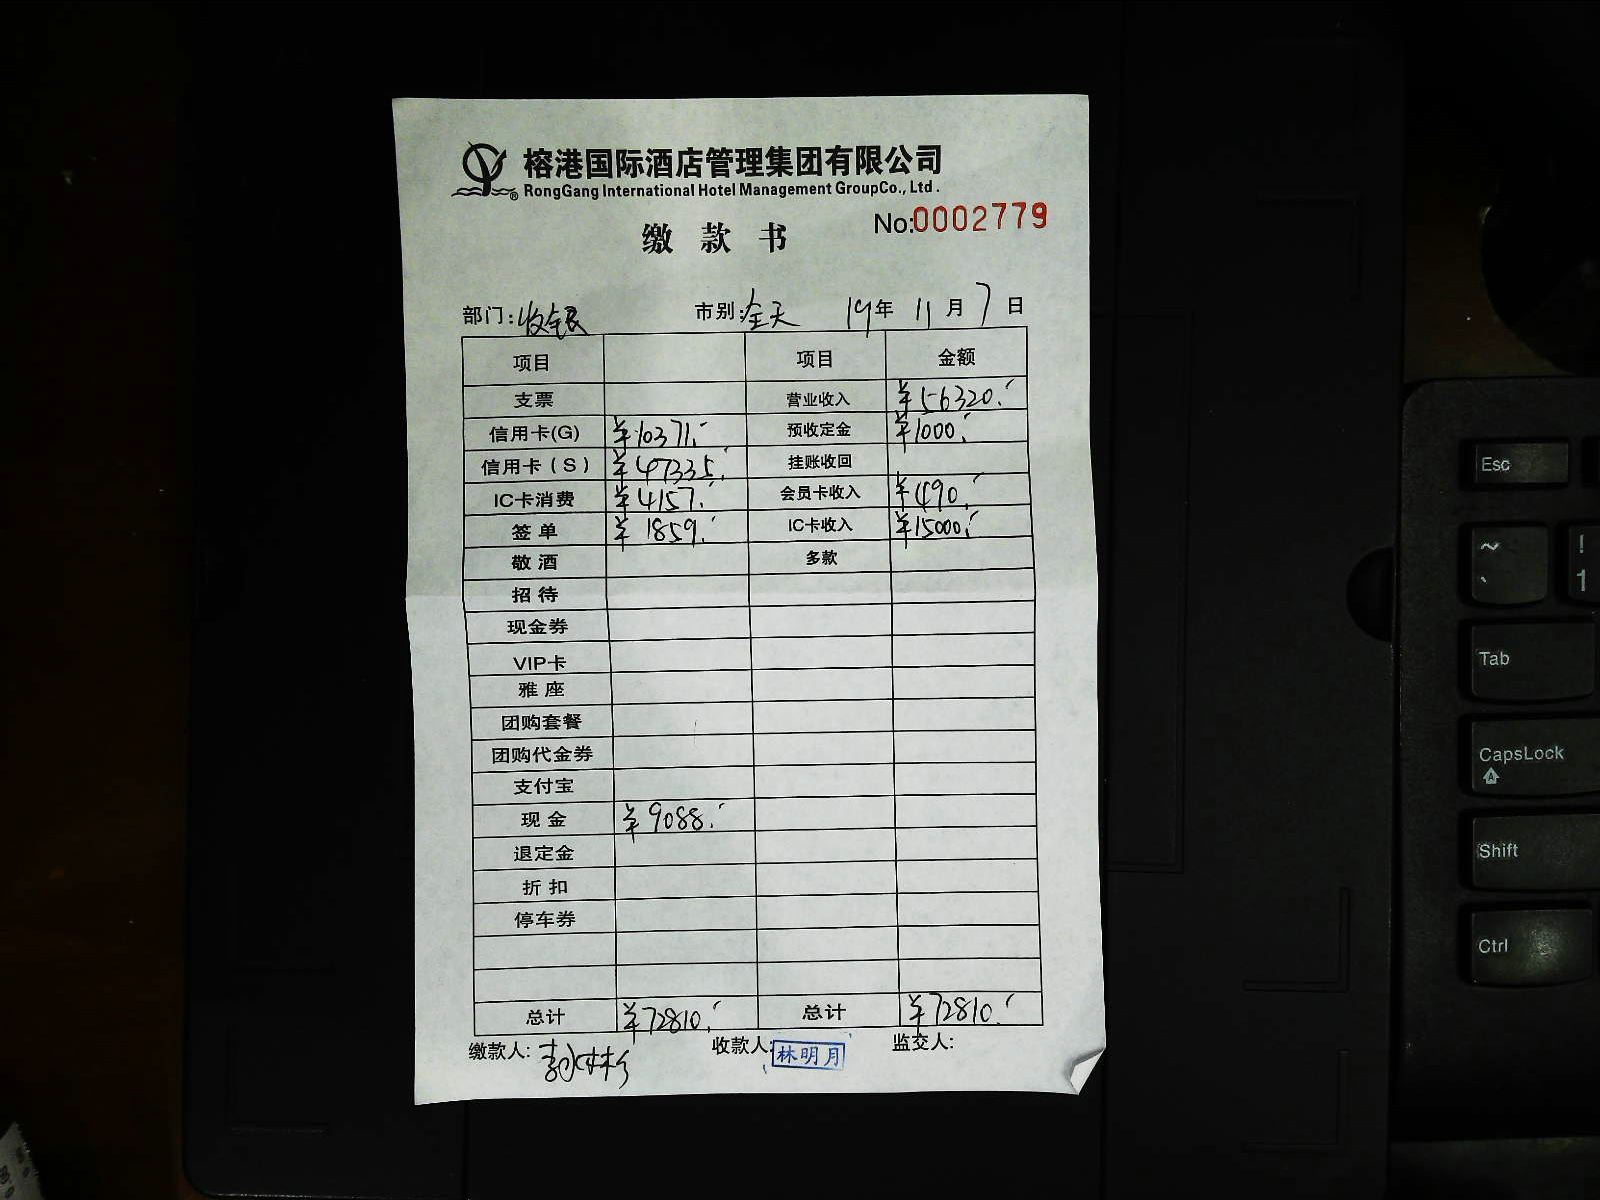 榕港国际酒店管理集团有限公司
®RongGang International Hotel Management GroupCo., Ltd .
No:0002779
缴 款 书
部门:收银 市别:全天 19年 11月 7日
项目 项目 金额
支票 营业收入 ¥56320.-
信用卡(G) ¥10371.- 预收定金 ¥1000.-
信用卡(S) ¥47335.- 挂账收回
IC卡消费 ¥4157.- 会员卡收入 ¥490.-
签 单 ¥1859.- IC卡收入 ¥15000.-
敬 酒 多款
招 待
现金券
VIP卡
雅 座
团购套餐
团购代金券
支付宝
现 金 ¥9088.-
退定金
折 扣
停车券
总计 ¥72810.- 总计 ¥72810.-
缴款人: 收款人: 林明月 监交人:
Esc
~ ` ! 1
Tab
CapsLock
Shift
Ctrl